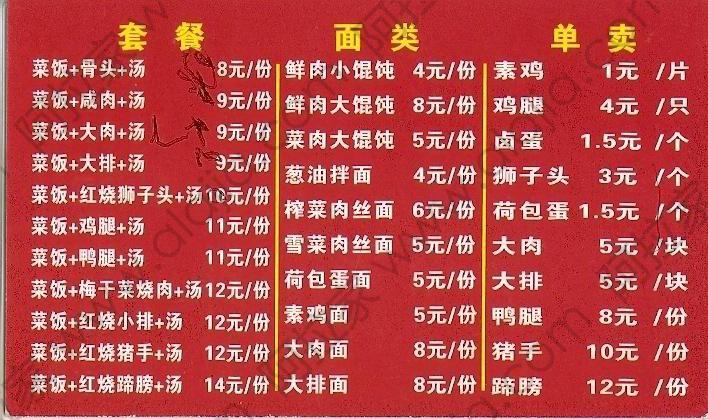 套餐
菜饭+骨头+汤 8元/份
菜饭+咸肉+汤 9元/份
菜饭+大肉+汤 9元/份
菜饭+大排+汤 9元/份
菜饭+红烧狮子头+汤 10元/份
菜饭+鸡腿+汤 11元/份
菜饭+鸭腿+汤 11元/份
菜饭+梅干菜烧肉+汤 12元/份
菜饭+红烧小排+汤 12元/份
菜饭+红烧猪手+汤 12元/份
菜饭+红烧蹄膀+汤 14元/份
面类
鲜肉小馄饨 4元/份
鲜肉大馄饨 8元/份
菜肉大馄饨 5元/份
葱油拌面 4元/份
榨菜肉丝面 6元/份
雪菜肉丝面 5元/份
荷包蛋面 5元/份
素鸡面 5元/份
大肉面 8元/份
大排面 8元/份
单卖
素鸡 1元 /片
鸡腿 4元 /只
卤蛋 1.5元 /个
狮子头 3元 /个
荷包蛋 1.5元 /个
大肉 5元 /块
大排 5元 /块
鸭腿 8元 /份
猪手 10元 /份
蹄膀 12元 /份